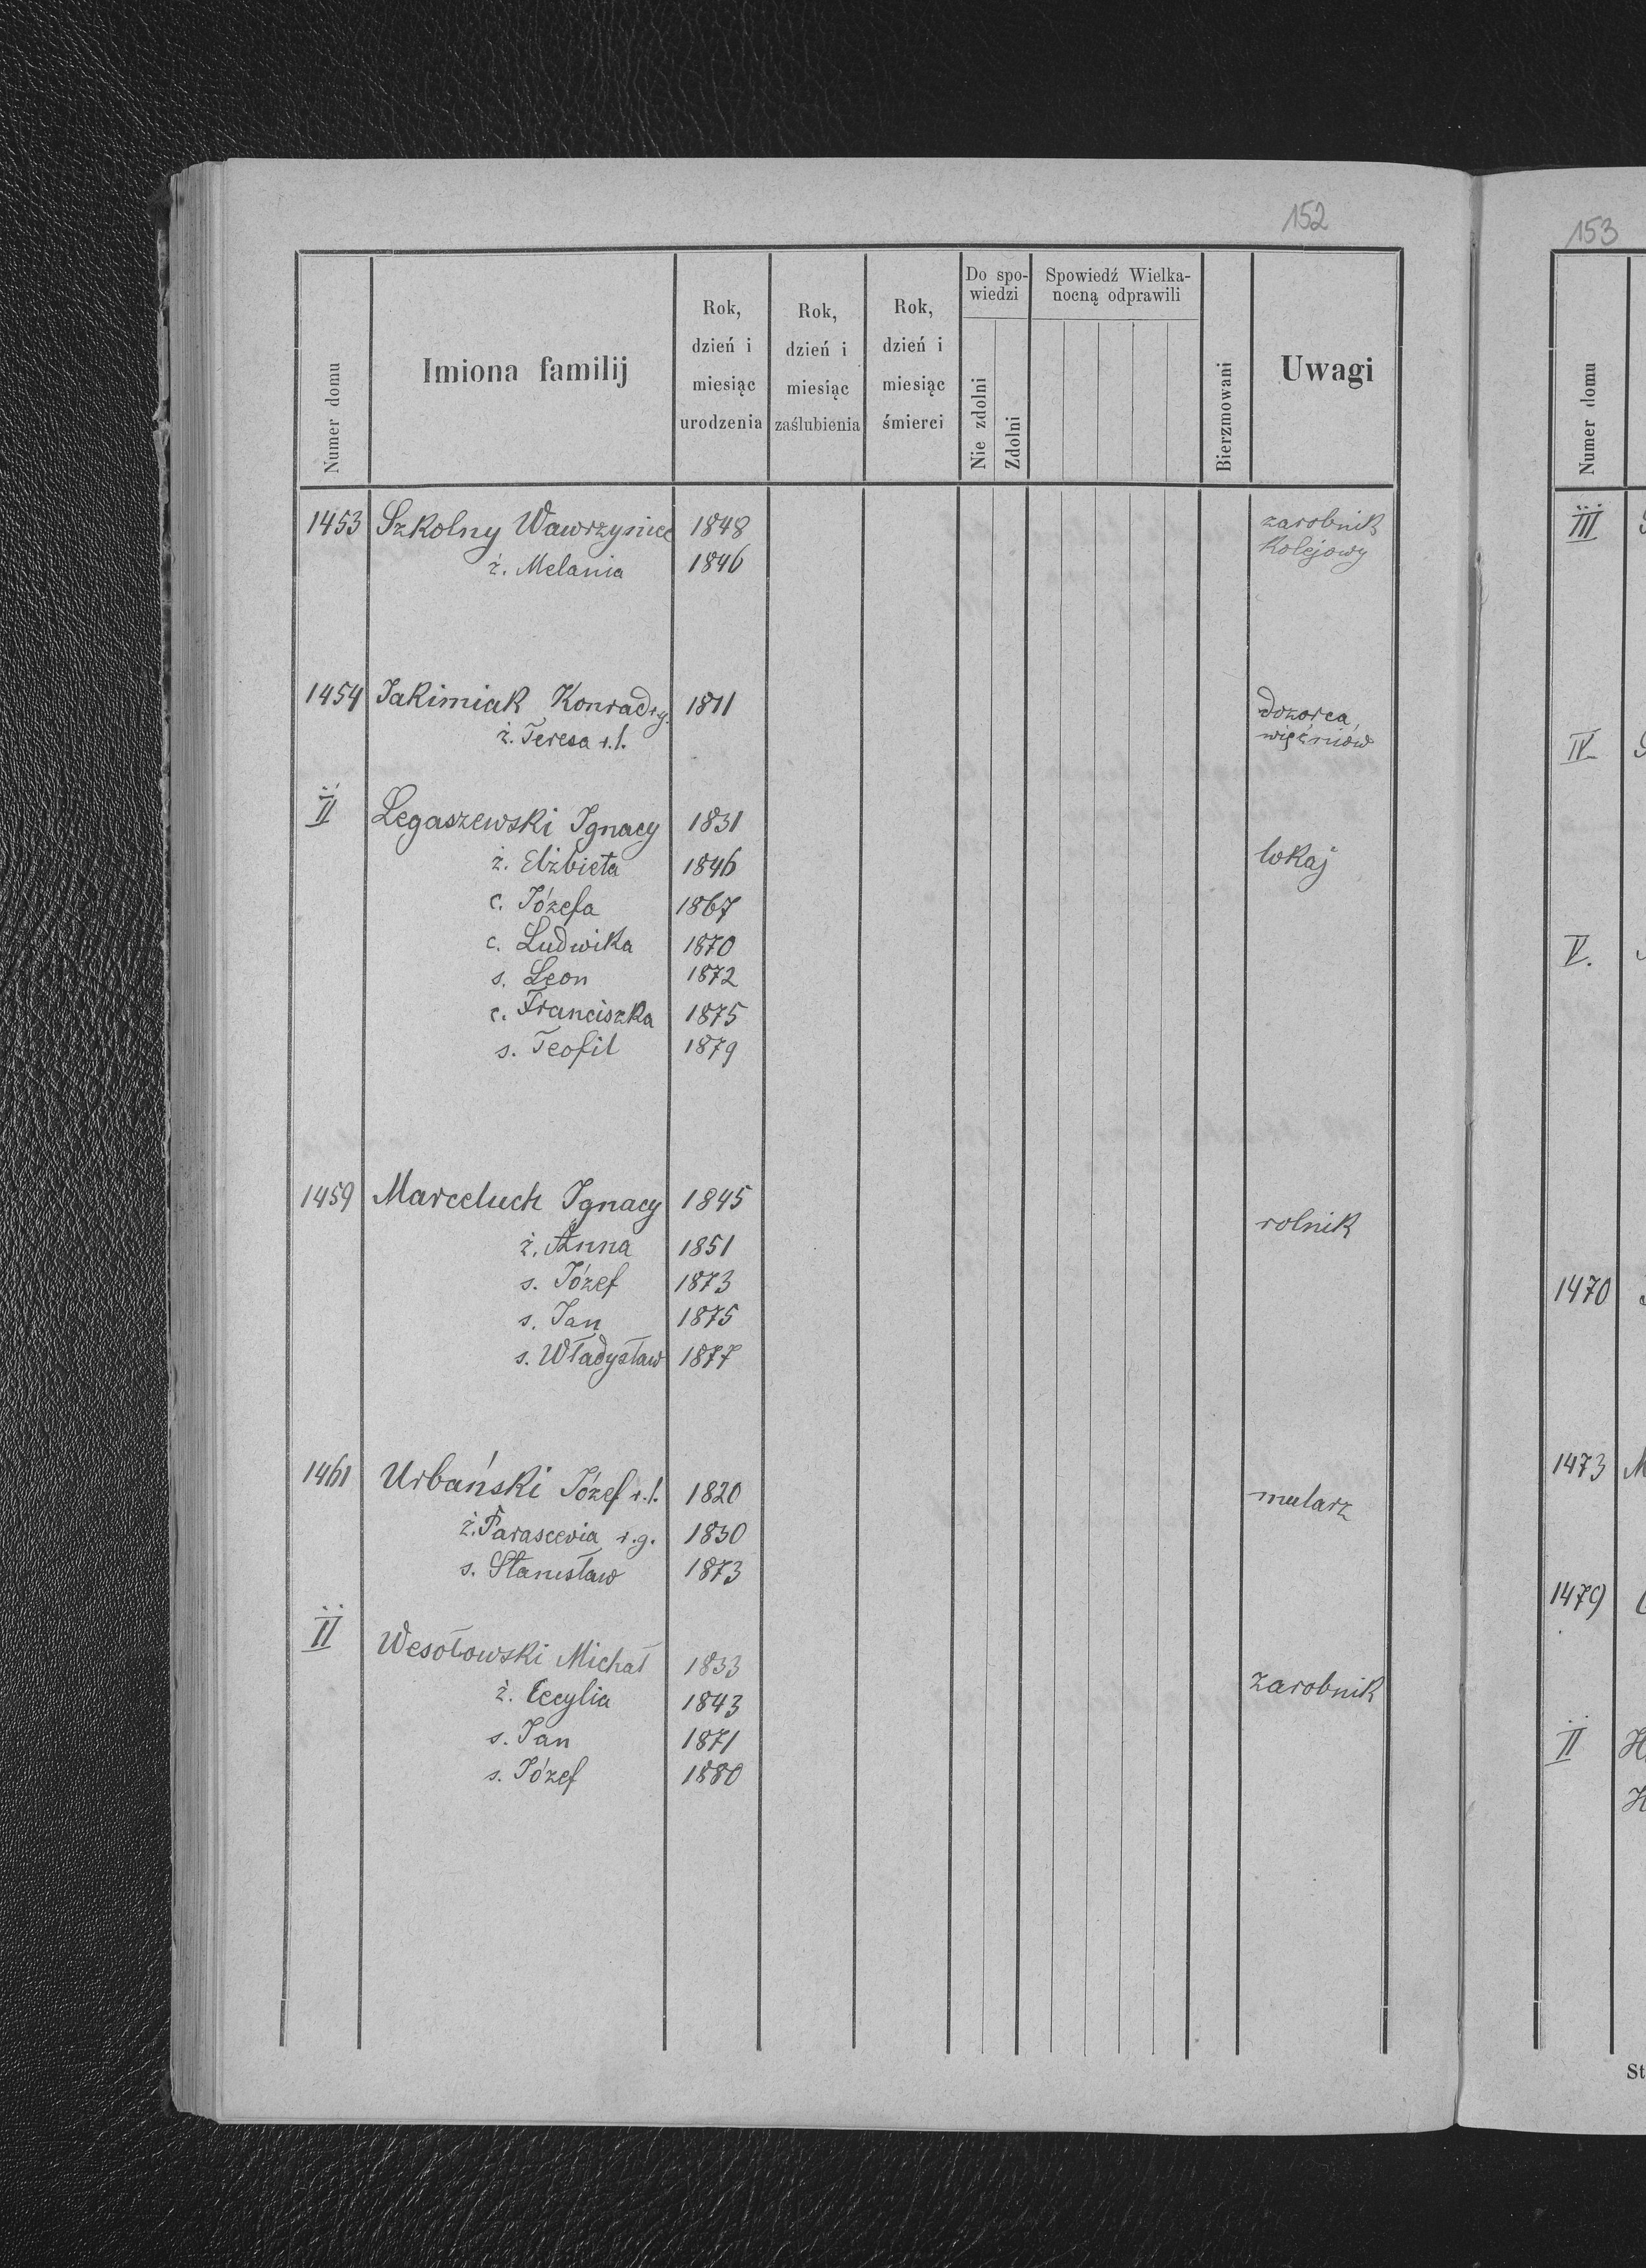 152
Numer domu
Imiona familij
Rok, dzień i miesiąc urodzenia
Rok, dzień i miesiąc zaślubienia
Rok, dzień i miesiąc śmierci
Do spowiedzi
Nie zdolni
Zdolni
Spowiedź Wielkanocną odprawili
Bierzmowani
Uwagi
1453 Szkolny Wawrzyniec 1848 zarobnik
ż. Melania 1846 kolejowy
1454 Jakimiak Konrad r.g. 1811 dozorca
ż. Teresa r.l. więźniów
II Legaszewski Ignacy 1831
ż. Elżbieta 1846 lokaj
c. Józefa 1867
c. Ludwika 1870
s. Leon 1872
c. Franciszka 1875
s. Teofil 1879
1459 Marceluch Ignacy 1845 rolnik
ż. Anna 1851
s. Józef 1873
s. Jan 1875
s. Władysław 1877
1461 Urbański Józef r.l. 1820 mularz
ż. Parascevia r.g. 1830
s. Stanisław 1873
II Wesołowski Michał 1833
ż. Cecylia 1843 zarobnik
s. Jan 1871
s. Józef 1880
153
Numer domu
III
IV
V.
1470
1473 M
1479
II H
H
St